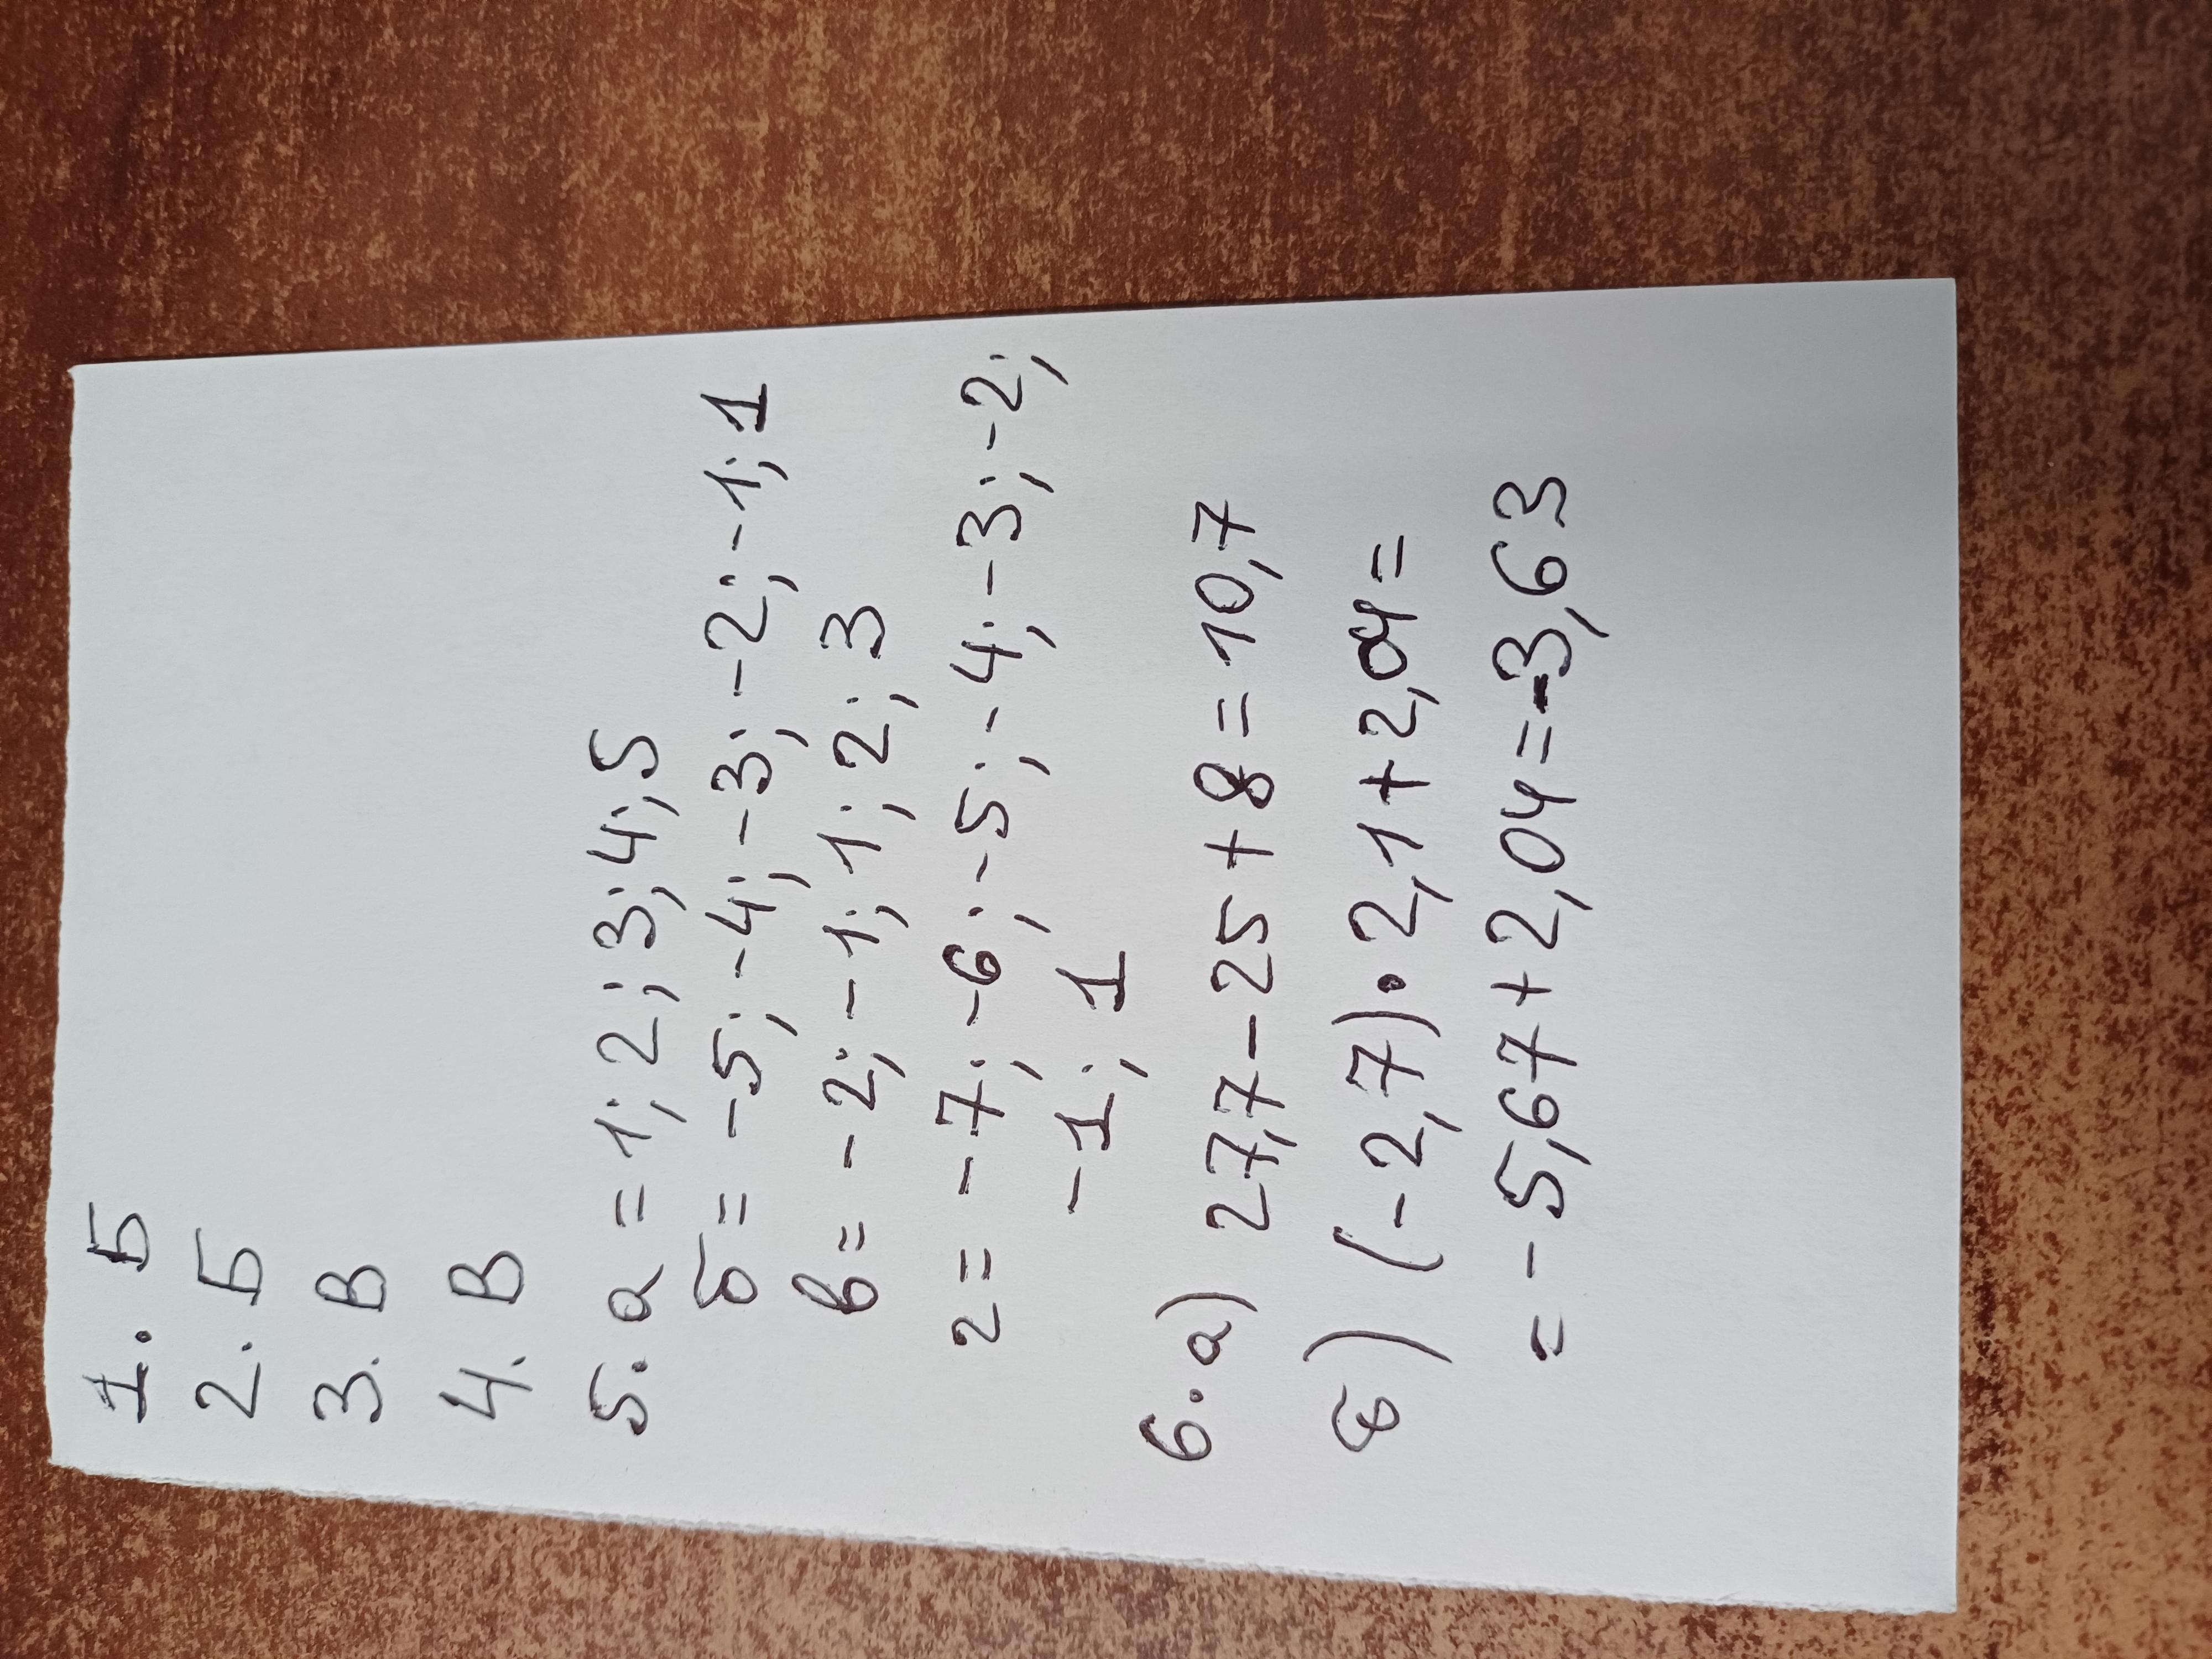 1. Б
2. Б
3. В
4. В
5. а = 1; 2; 3; 4; 5
б = -5; -4; -3; -2; -1; 1
в = -2; -1; 1; 2; 3
г = -7; -6; -5; -4; -3; -2;
-1; 1
6. а) 27,7 - 25 + 8 = 10,7
б) (-2,7) • 2,1 + 2,04 =
= - 5,67 + 2,04 = -3,63